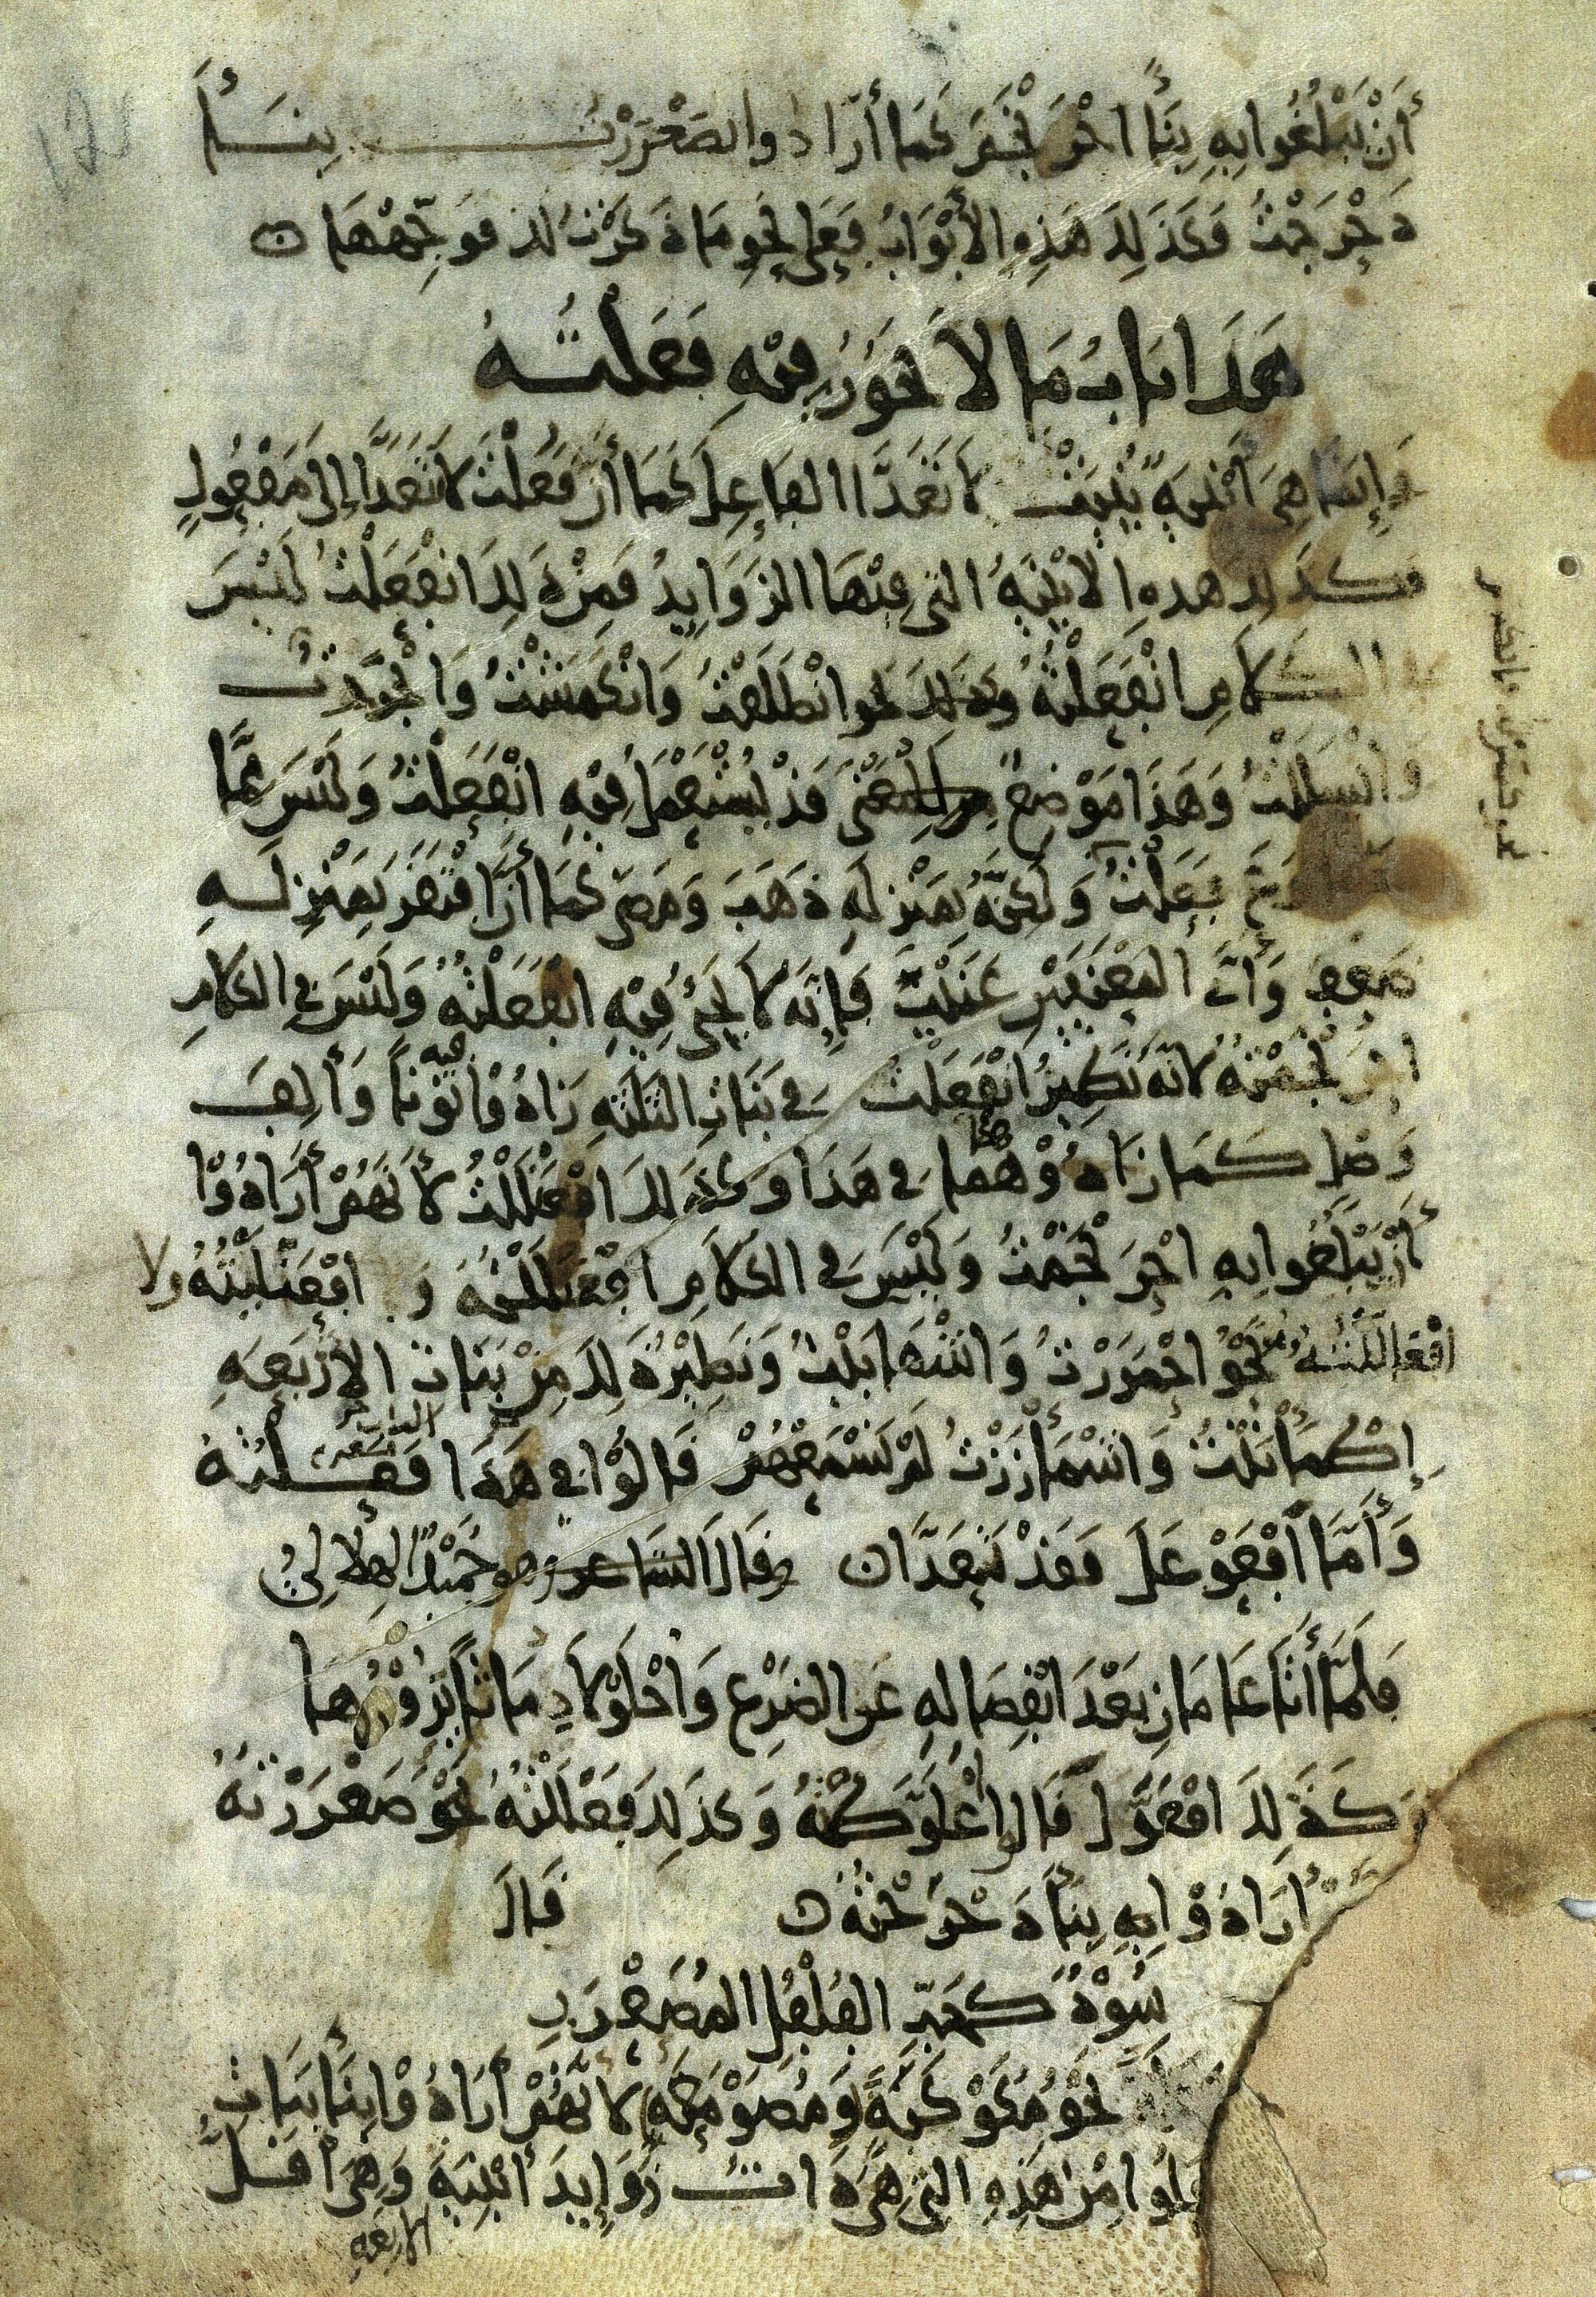 أَنْ يَبْلُغُوا بِهِ بِنَاءَ احْرَنْجَمَ كَمَا أَرَادُوا بِصَعْرَرْتُ بِنَاءَ
دَحْرَجْتُ فَكَذَلِكَ هَذِهِ الأَبْوَابُ فَعَلَى نَحْوِ مَا ذَكَرْتُ لَكَ فَوَجِّهْهَا
هَذَا بَابُ مَا لَا يَجُوزُ فِيهِ فَعَلْتُهُ
وَإِنَّمَا هِيَ أَبْنِيَةٌ بُنِيَتْ لَا تَعَدَّا الفَاعِلَ كَمَا أَنَّ فَعُلْتُ لَا يَتَعَدَّا إِلَى مَفْعُولٍ
فَكَذَلِكَ هذه الأَبْنِيَةُ التي فِيْهَا الزَّوَايِدُ فَمِنْ ذَلِكَ انْفَعَلْتُ لَيْسَ
في الكَلَامِ انْفَعَلْتُهُ وَذَلِكَ نحو انْطَلَقْتُ وَانْكَمَشْتُ وَانْجَرَدْتُ
وَانْسَلَلْتُ وَهَذَا مَوْضِعٌ قَدْ يُسْتَعْمَلُ فِيْهِ انْفَعَلْتُ وَلَيْسَ مِمَّا
طَاوَعَ فَعَلْتُ وَلَكِنَّهُ بِمَنْزِلَةِ ذَهَبَ وَمَضَى كَمَا أَنَّ افْتَقَرَ بِمَنْزِلَةِ
ضَعُفَ وَأَيَّ المَعْنَيَيْنِ عَنَيْتَ فَإِنَّهُ لَا يَجِيءُ فِيْهِ انْفَعَلْتُهُ وَلَيْسَ في الكَلَامِ
احْرَنْجَمْتُهُ لِأَنَّهُ نَظِيرُ انْفَعَلْتُ في بَنَاتِ الثَّلَاثَةِ زَادُوْا فيه نُوْنًا وَأَلِفَ
وَصْلٍ كَمَا زَادُوْهُمَا في هَذَا وَكَذَلِكَ افْعَنْلَلْتُ لِأَنَّهُمْ أَرَادُوْا
أَنْ يَبْلُغُوا بِهِ احْرَنْجَمْتُ وَلَيْسَ في الكَلَامِ افْعَنْلَلْتُهُ وَ افْعَنْلَيْتُهُ ولا
افْعَالَلْتُهُ وهو نَحْوُ احْمَرَرْتُ وَاشْهَابَبْتُ وَنَظِيْرُ ذَلِكَ مِنْ بَنَاتِ الأَرْبَعَةِ
اطْمَأْنَنْتُ وَاشْمَأْزَزْتُ لَمْ نَسْمَعْهُمْ قَالُوْا في هَذَا البَابِ فَعَلْتُهُ
وَأَمَّا افْعَوْعَلَ فَقَدْ تَعَدَّا قَالَ الشَّاعِرُ وهو حُمَيْدٌ الهِلَالِيُّ
فَلَمَّا أَتَا عَامَانِ بَعْدَ انْفِصَالِهِ عَنِ الضَّرْعِ وَاحْلَوْلَا دِمَاثًا يَرُوْدُهَا
وَكَذَلِكَ افْعَوَّلَ قَالُوا اعْلَوَّطْتُهُ وَكَذَلِكَ فَعْلَلْتُهُ نَحْوُ صَعْرَرْتُهُ
أَرَادُوْا بِهِ بِنَاءَ دَحْرَجْتُهُ قَالَ
سُوْدٌ كَحَبِّ الفُلْفُلِ المُصَعْرَرِ
نَحْوُ مُكَوْكَبَةٍ وَمُصَوْمَعَةٍ لِأَنَّهُمْ أَرَادُوْا بِنَاءَ بَنَاتِ
الأربعة
فَجَعَلُوا مِنْ هَذِهِ التي هِيَ ذَاتُ زَوَايِدَ أَبْنِيَةً وَهِيَ أَقَلُّ